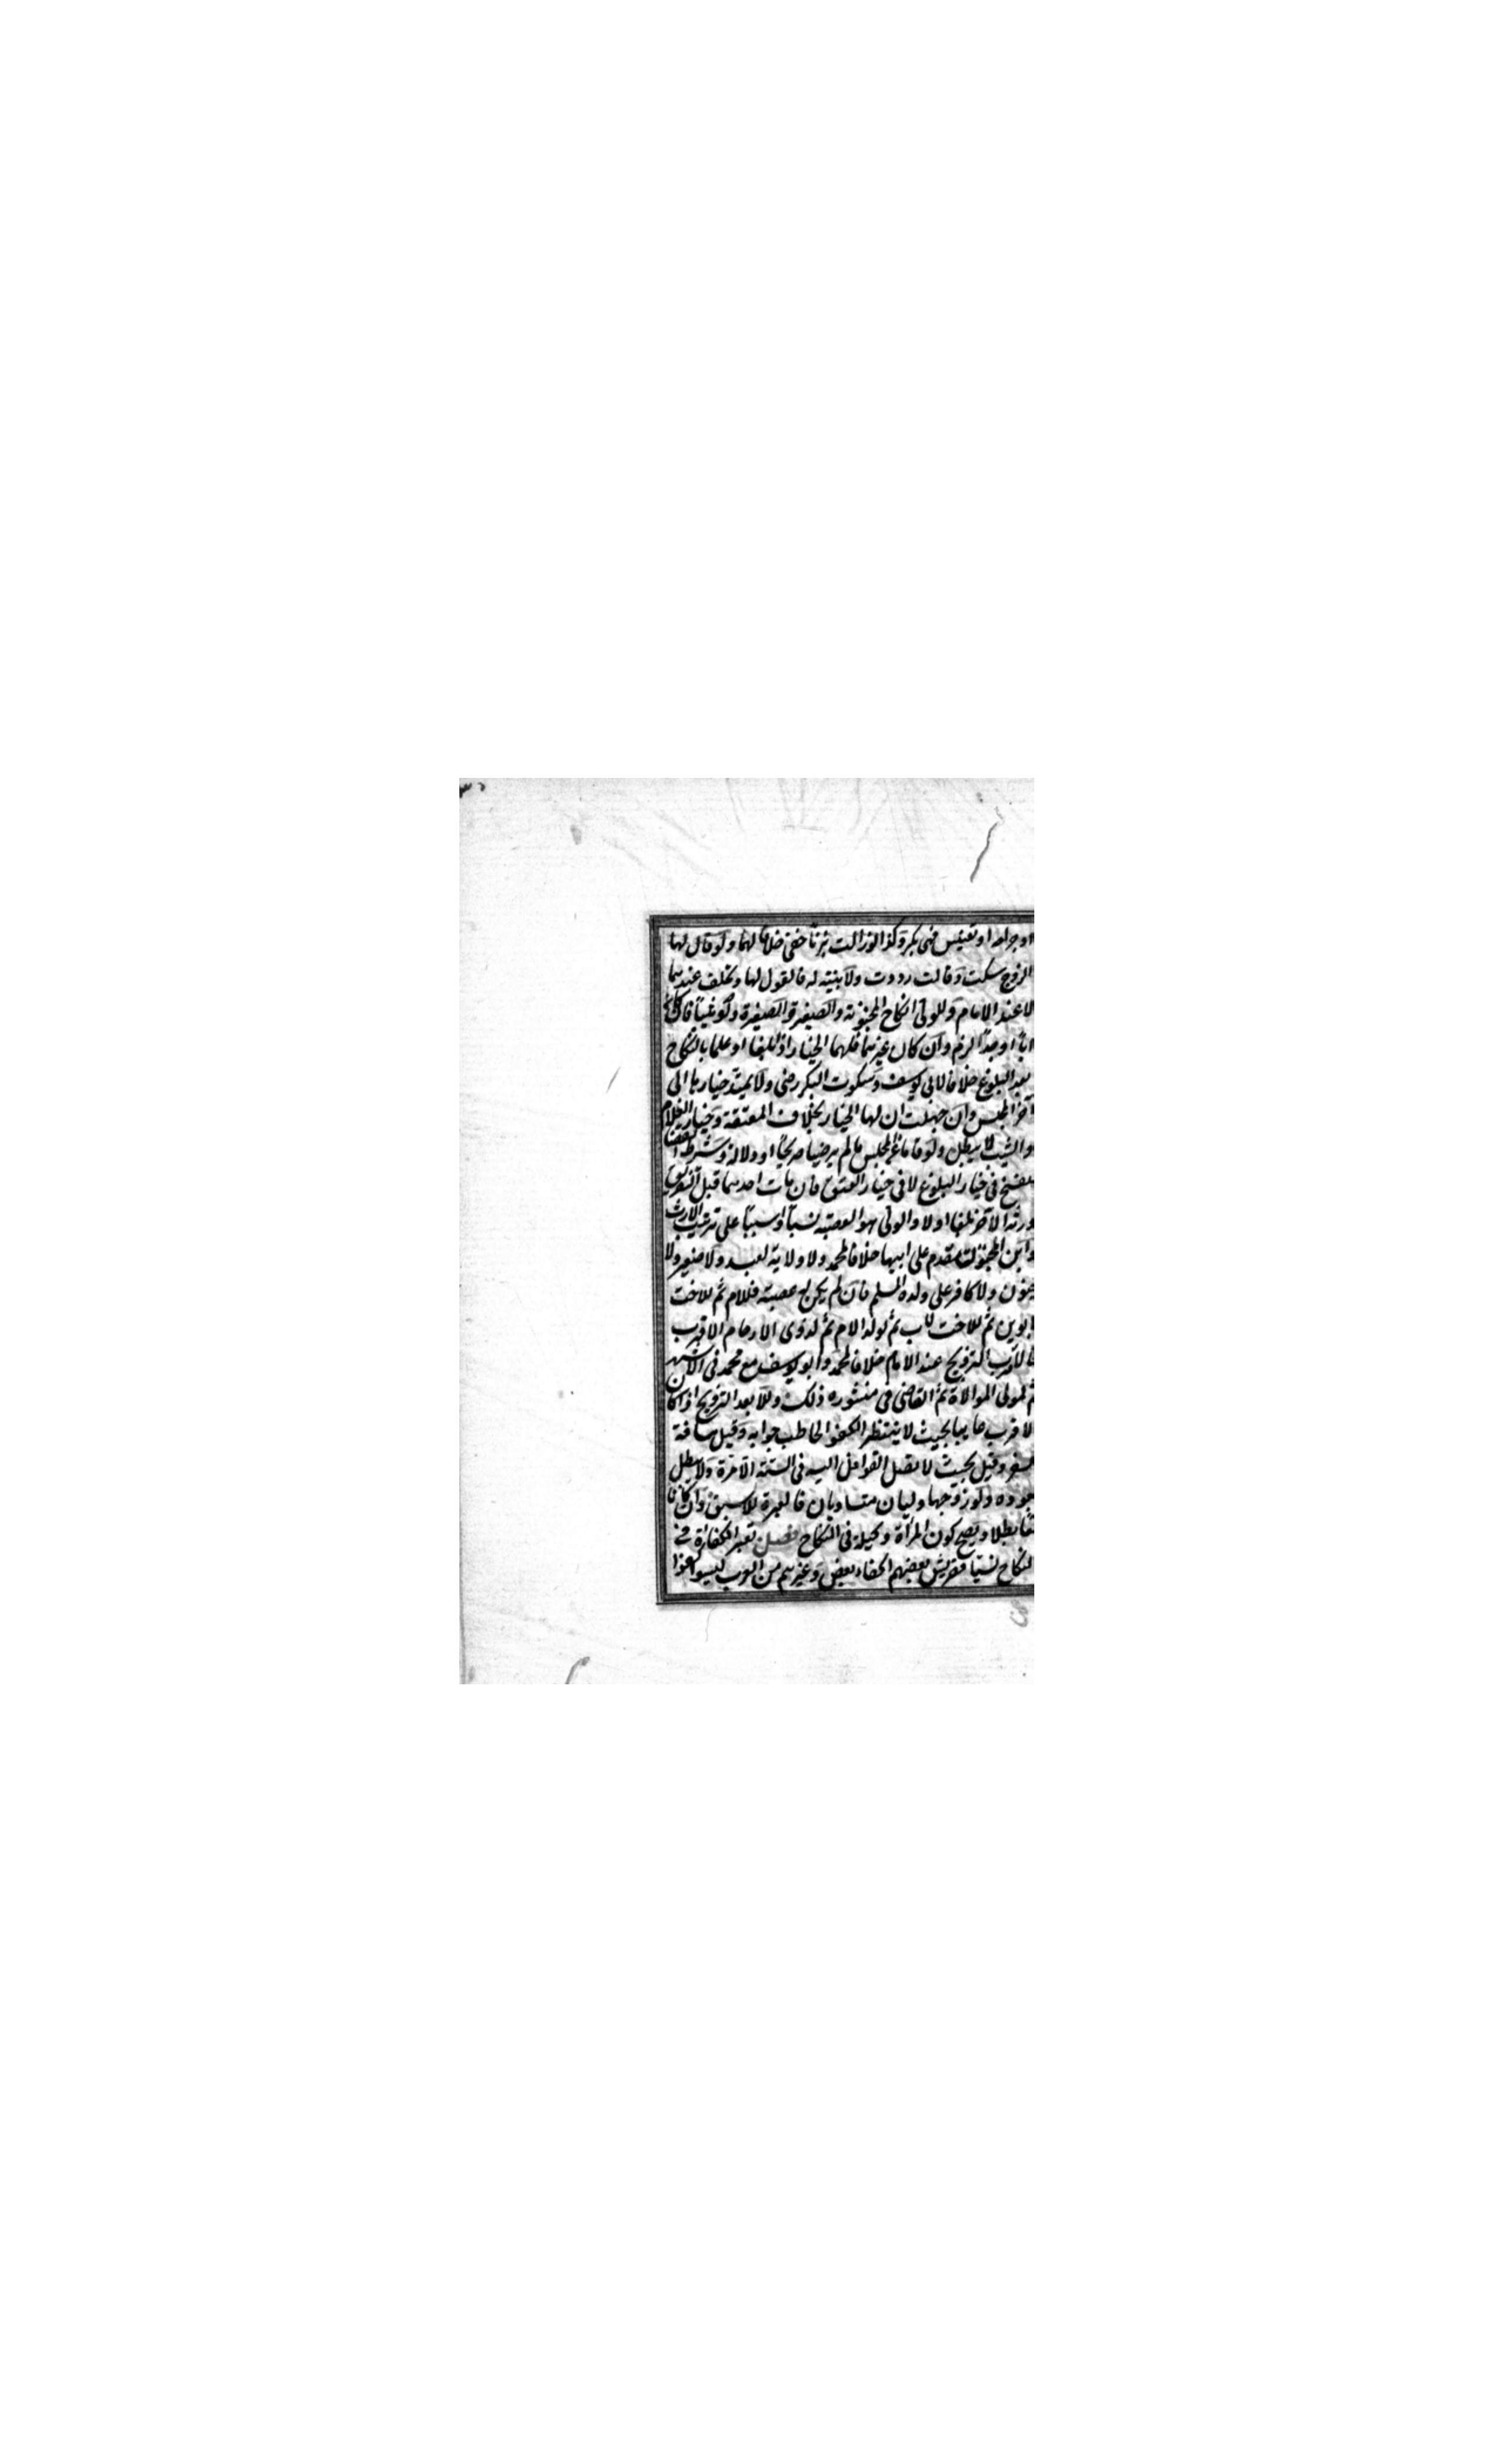 او جراحة او تعنيس فهي بكر وكذا لو زالت بزنا خفي خلافا لهما ولو قال لها
الزوج سكت وقالت رددت ولا بينة له فالقول لها وتحلف عندهما
لا عند الامام وللولي انكاح المجنونة والصغير والصغيرة ولو ثيبا فان كان
ابا او جدا لزم وان كان غيرهما فلهما الخيار اذا بلغا او علما بالنكاح
بعد البلوغ خلافا لابي يوسف وسكوت البكر رضى ولا يمتد خيارها الى
آخر المجلس وان جهلت ان لها الخيار بخلاف المعتقة وخيار الغلام
والثيب لا يبطل ولو قاما عن المجلس ما لم يرضيا صريحا او دلالة وشرط القضاء
للفسخ في خيار البلوغ لا في خيار العتق فان مات احدهما قبل التفريق
ورثه الآخر بلغا او لا والولي هو العصبة نسبا وسببا على ترتيب الارث
وابن المجنونة مقدم على ابيها خلافا لمحمد ولا ولاية لعبد ولا صغير ولا
مجنون ولا كافر على ولده المسلم فان لم يكن عصبة فللام ثم للاخت
لابوين ثم للاخت لاب ثم لولد الام ثم لذوى الارحام الاقرب
فالاقرب التزويج عند الامام خلافا لمحمد وابو يوسف مع محمد في الاشهر
ثم لمولى الموالاة ثم القاضي في منشوره ذلك وللابعد التزويج اذا كان
الاقرب غايبا بحيث لا ينتظر الكفؤ الخاطب جوابه وقيل مسافة
السفر وقيل بحيث لا تصل القوافل اليه في السنة الا مرة ولا يبطل
بعوده ولو زوجها وليان متساويان فالعبرة للاسبق وان كانا
معا بطلا ويصح كون المرأة وكيلة في النكاح فصل تعتبر الكفاءة في
النكاح نسبا فقريش بعضهم اكفاء بعض وغيرهم من العرب ليسوا كفؤا